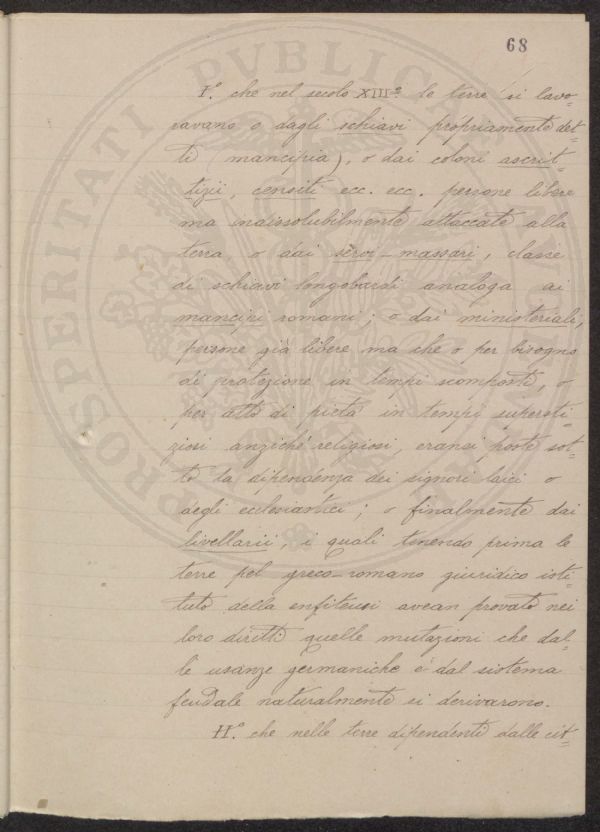 68
I.° che nel secolo XIII.° le terre si lavo=
ravano o dagli schiavi propriamente det=
ti (mancipia), o dai coloni ascrit=
tizii, censiti ecc. ecc. persone libere
ma indissolubilmente attaccate alla
terra, o dai servi-massari, classe
di schiavi longobardi analoga ai
mancipi romani; o dai ministeriali,
persone già libere ma che o per bisogno
di protezione in tempi scomposti, o
per atto di pietà in tempi supersti=
ziosi anzichè religiosi, eransi poste sot=
to la dipendenza dei signori laici o
degli ecclesiastici; o finalmente dai
livellarii, i quali tenendo prima le
terre pel greco-romano giuridico isti=
tuto della enfiteusi avean provato nei
loro diritti quelle mutazioni che dal=
le usanze germaniche e dal sistema
feudale naturalmente si derivarono.
II.° che nelle terre dipendenti dalle cit=
PROSPERITATI PVBLICAE